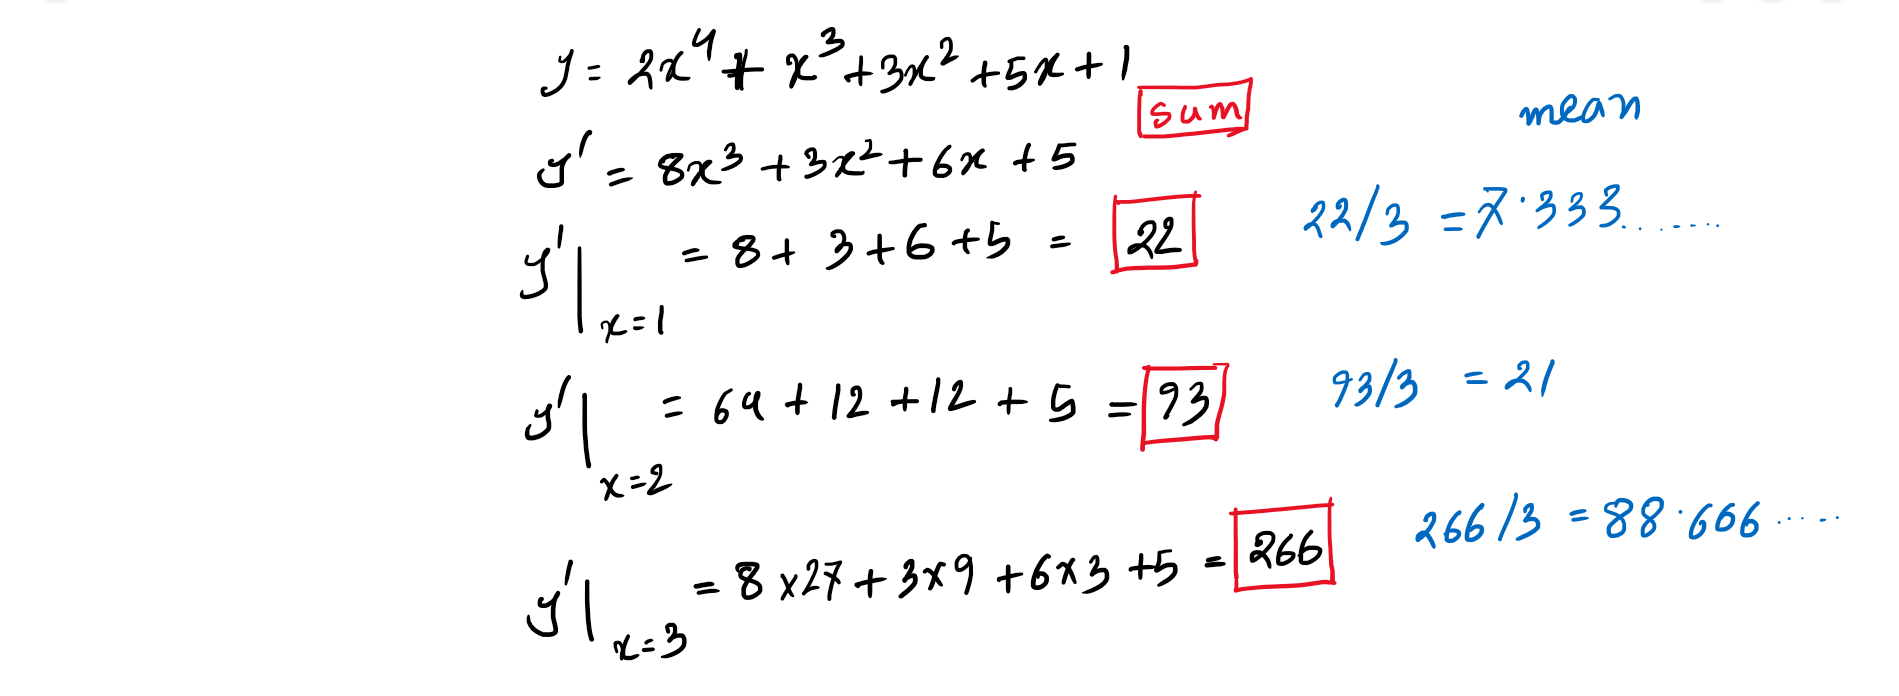 y = 2x⁴ + x³ + 3x² + 5x + 1
sum
mean
y' = 8x³ + 3x² + 6x + 5
y'|x=1 = 8 + 3 + 6 + 5 = 22
22/3 = 7.333.......
y'|x=2 = 64 + 12 + 12 + 5 = 93
93/3 = 21
y'|x=3 = 8 x 27 + 3 x 9 + 6 x 3 + 5 = 266
266/3 = 88.666.....